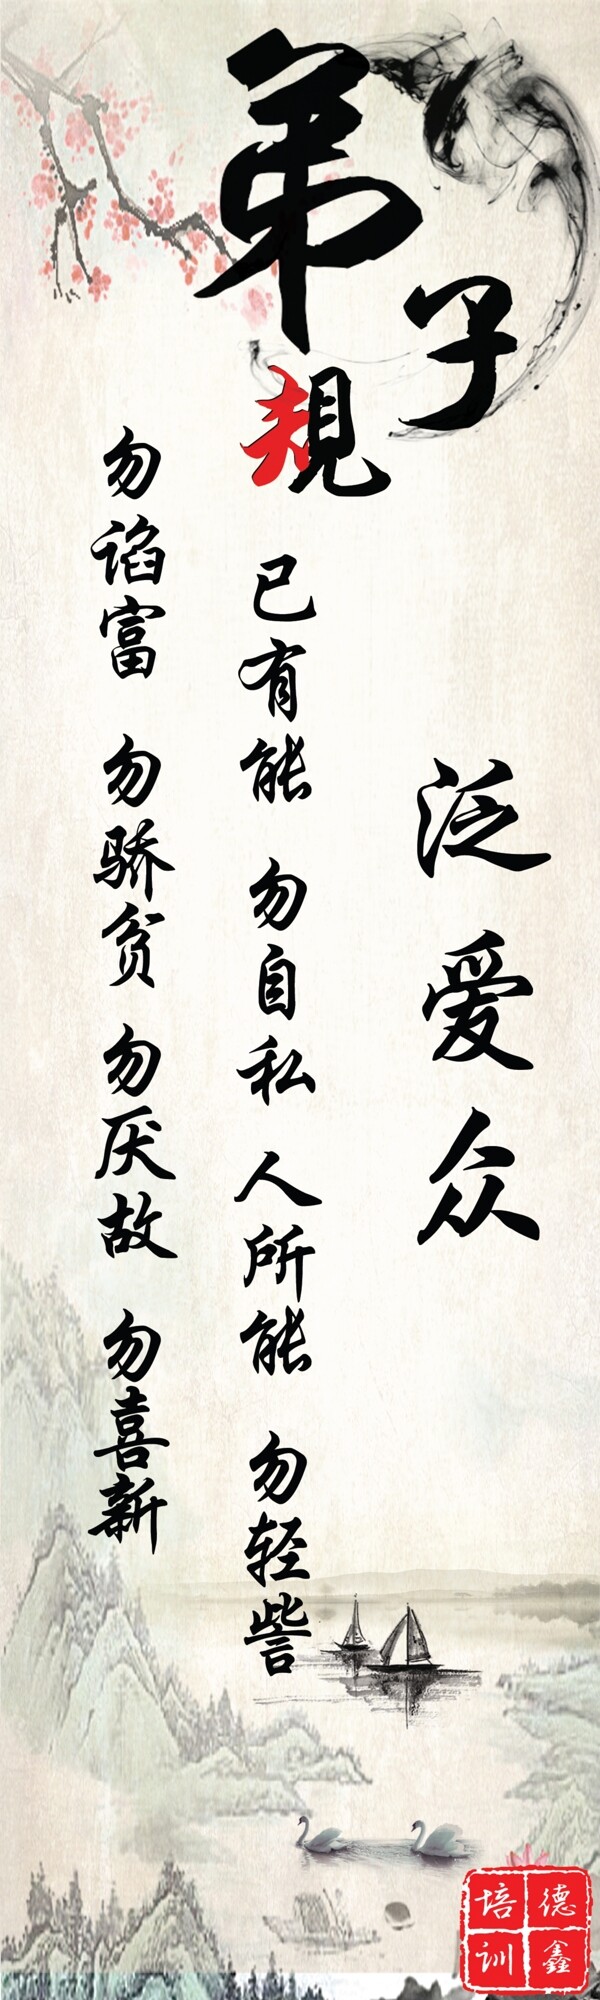 弟子規
泛爱众
已有能 勿自私 人所能 勿轻訾
勿谄富 勿骄贫 勿厌故 勿喜新
德鑫
培训